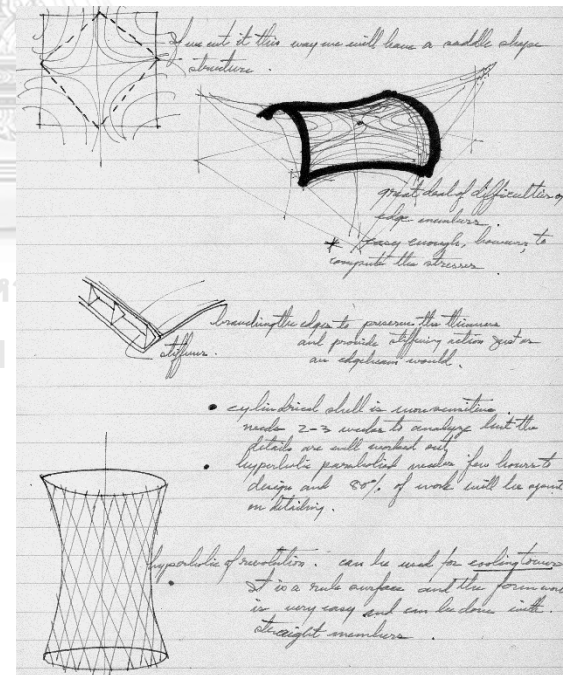 If we cut it this way we will have a saddle shape
structure.
great deal of difficulties on
edge members.
* easy enough, however, to
compute the stresses
branching the edges to preserve the thinness
and provide stiffening action just as
an edgebeam would.
stiffners.
• cylindrical shell is more sensitive.
needs 2-3 weeks to analyze but the
details are well worked out
• hyperbolic paraboloid needs few hours to
design and 80% of work will be spent
on detailing.
hyperbolic of revolution. can be used for cooling towers
• It is a rule surface and the form work
is very easy and can be done with
straight members.